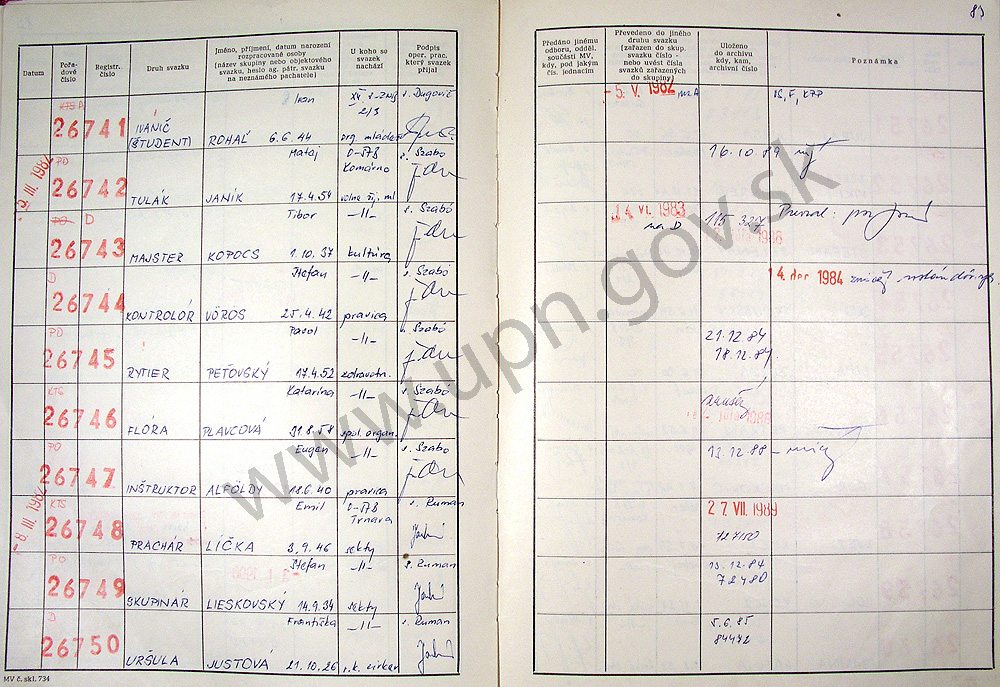 83
Datum
Pořa-
dové
číslo
Registr.
číslo
Druh svazku
Jméno, příjmení, datum narození
rozpracované osoby
(název skupiny nebo objektového
svazku, heslo ag. pátr. svazku
na neznámého pachatele)
U koho se
svazek
nachází
Podpis
oper. prac.
který svazek
přijal
Předáno jinému
odboru, odděl.
součásti MV,
kdy, pod jakým
čís. jednacím
Převedeno do jiného
druhu svazku
(zařazen do skup.
svazku číslo -
nebo uvést čísla
svazků zařazených
do skupiny)
Uloženo
do archivu
kdy, kam,
archivní číslo
Poznámka
26741
IVANIČ
(ŠTUDENT)
ROHAĽ 6.6.44
Ivan
s. Dugovič
- 5. V. 1982
- 5. III. 1982
PO
26742
TULÁK
JANÍK 17.4.54
Matej
Komárno
s. Szabo
16.10.89
PO D
26743
MAJSTER
KOPOCS 1.10.37
Tibor
-11-
kultúra
s. Szabó
14. VI. 1983
na D
115 327
D
26744
KONTROLÓR
VÖRÖS 25.4.42
Štefan
-11-
pravica
s. Szabó
14. dec. 1984
PO
26745
RYTIER
PEŤOVSKÝ 17.4.52
Pavol
-11-
zdravotn.
s. Szabo
21.12.84
18.12.84.
KTS
26746
FLÓRA
PLAVCOVÁ 31.8.58
Katarína
-11-
spol. organ.
s. Szabó
PO
26747
INŠTRUKTOR
ALFÖLDY 18.6.40
Eugen
-11-
pravica
s. Szabo
13.12.88
- 8. III. 1982
KTS
26748
PRACHÁR
LÍČKA 3.9.46
Emil
Trnava
sekty
s. Ruman
27. VII. 1989
PO
26749
SKUPINÁR
LIESKOVSKÝ 14.9.34
Štefan
-11-
sekty
s. Ruman
13.12.84
72480
D
26750
URŠULA
JUSTOVÁ 21.10.26
Františka
-11-
r.k. cirkev
s. Ruman
5.6.85
84472
MV č. skl. 734
www.upn.gov.sk